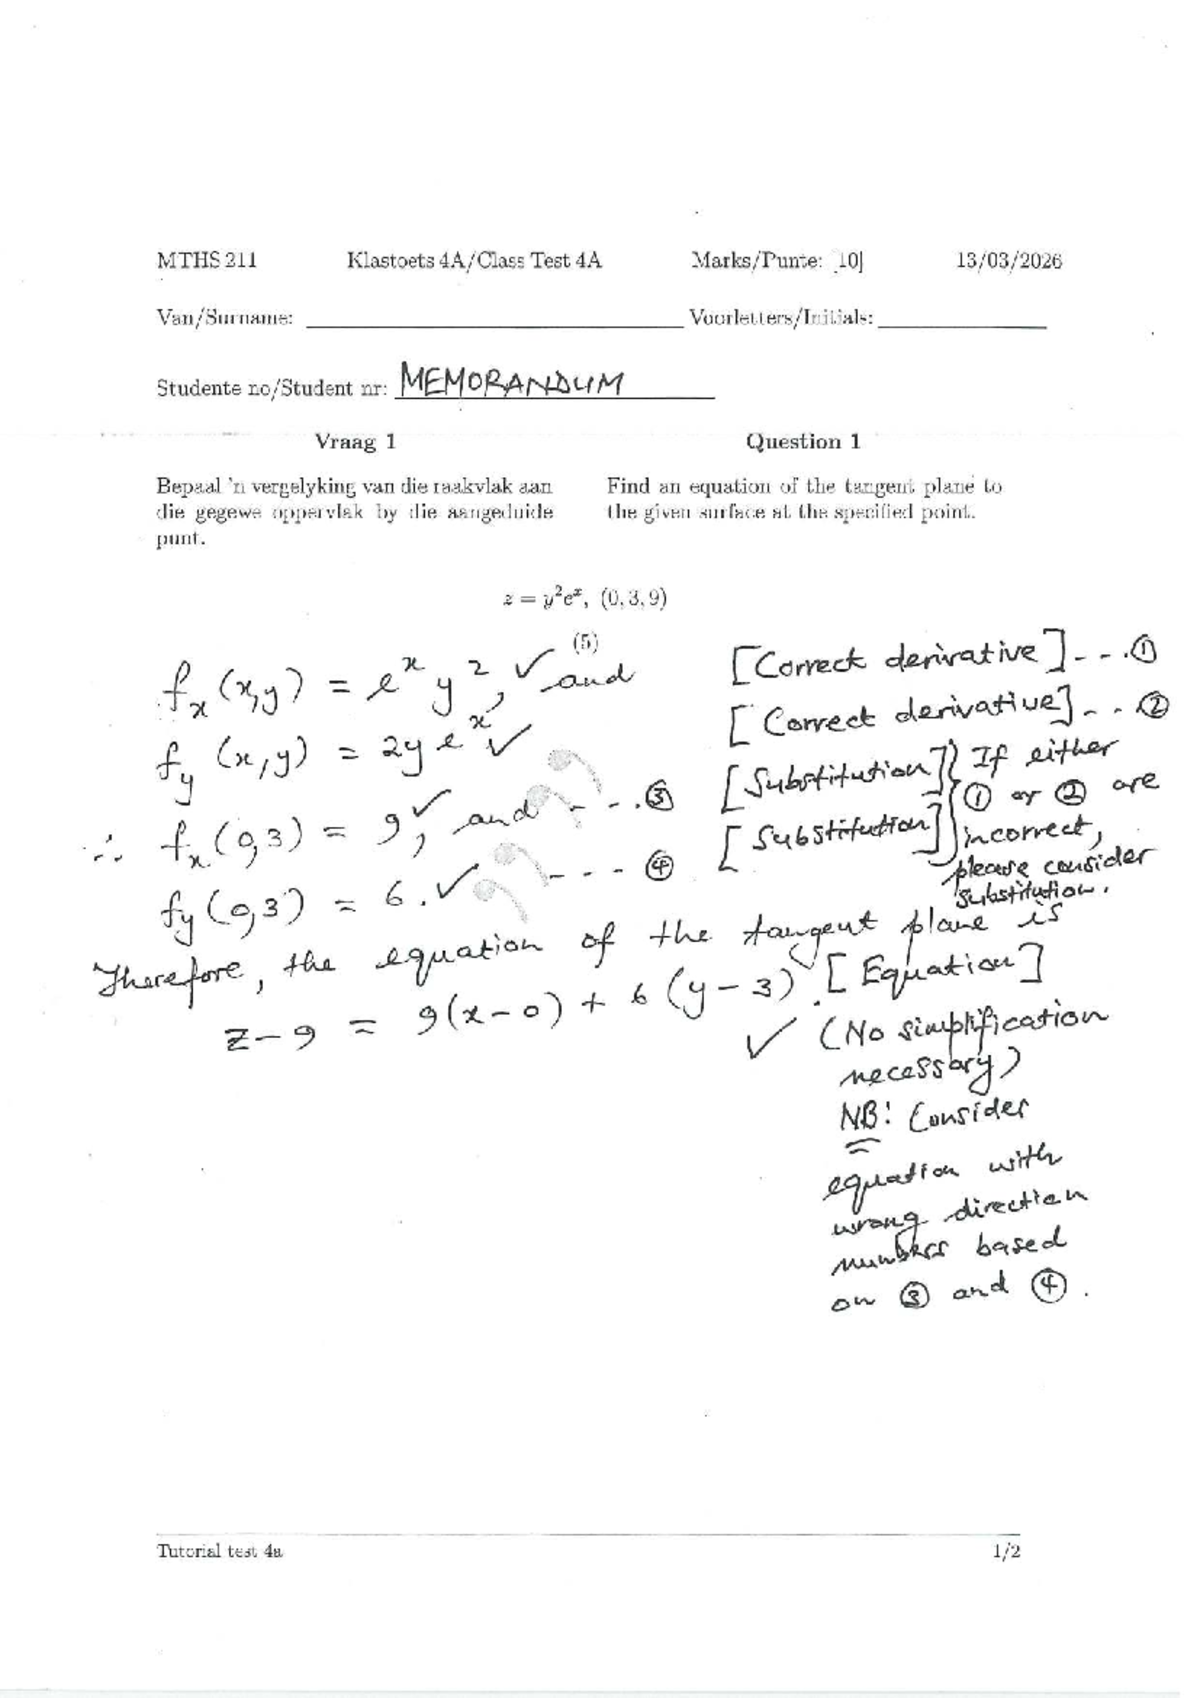 MTHS 211 Klastoets 4A/Class Test 4A Marks/Punte: [10] 13/03/2026
Van/Surname: Voorletters/Initials:
Studente no/Student nr: MEMORANDUM
Vraag 1
Bepaal 'n vergelyking van die raakvlak aan
die gegewe oppervlak by die aangeduide
punt.
Question 1
Find an equation of the tangent plane to
the given surface at the specified point.
z = y²eˣ, (0, 3, 9)
(5)
fₓ(x,y) = eˣy², ✓ and [Correct derivative] - - - ①
f_y (x,y) = 2yeˣ ✓ [Correct derivative] - - ②
∴ fₓ(0,3) = 9 ✓, and - - - ③ [Substitution]
f_y(0,3) = 6. ✓ - - - - ④ [Substitution]
} If either
① or ② are
incorrect,
please consider
substitution.
Therefore, the equation of the tangent plane is
z - 9 = 9(x - 0) + 6(y - 3). [Equation]
✓ (No simplification
necessary)
NB: Consider
equation with
wrong direction
numbers based
on ③ and ④.
Tutorial test 4a 1/2